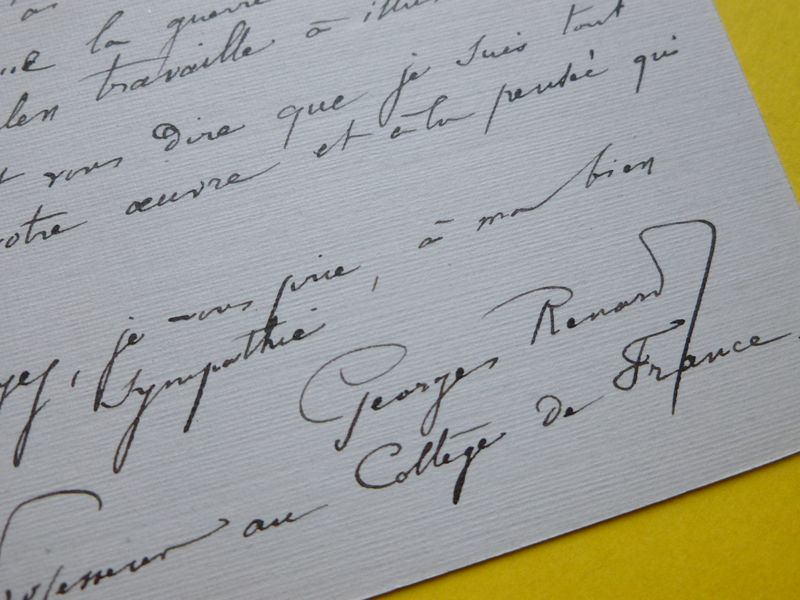 la guerre
travaille à
vous dire que je suis tout
votre œuvre et à la pensée qui
je vous prie, à ma bien
sympathie
Georges Renard
Professeur au Collège de France.